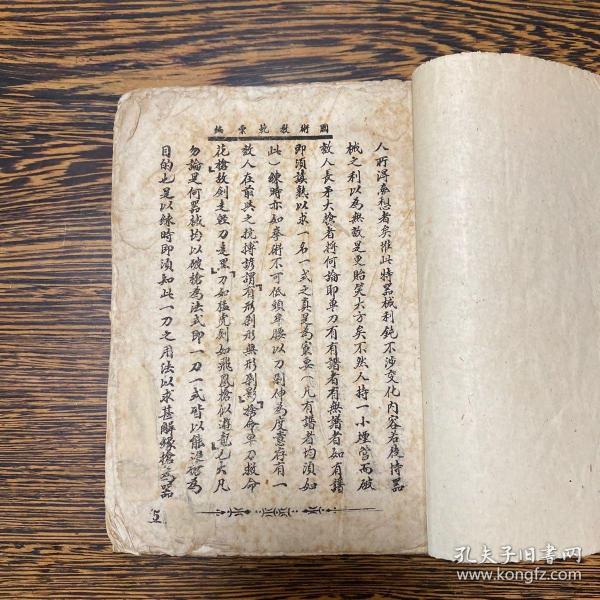 國術教範彙編
人所得夢想者矣惟此恃器械利鈍不涉變化內容若徒恃器
械之利以為無敵是更貽笑大方矣不然人持一小煙管而破
敵人長矛大槍者將何論即單刀有有譜者有無譜者如有譜
即須讓熟以求一名一式之真是為靈矣（凡有譜者均須如
此）練時亦如拳術不可低頭牟腰以刀到伸為度意存有一
敵人在前與之抗搏諺謂有形剁形無形剁影捨命單刀救命
花槍故劍走輕刀走黑刀如猛虎劍如飛鳳槍似游龍也大凡
勿論是何器械均以破槍為法式即一刀一式皆以能進槍為
目的也是以練時即須知此一刀之用法以求甚解緣槍為器
5
孔夫子旧书网
www.kongfz.com